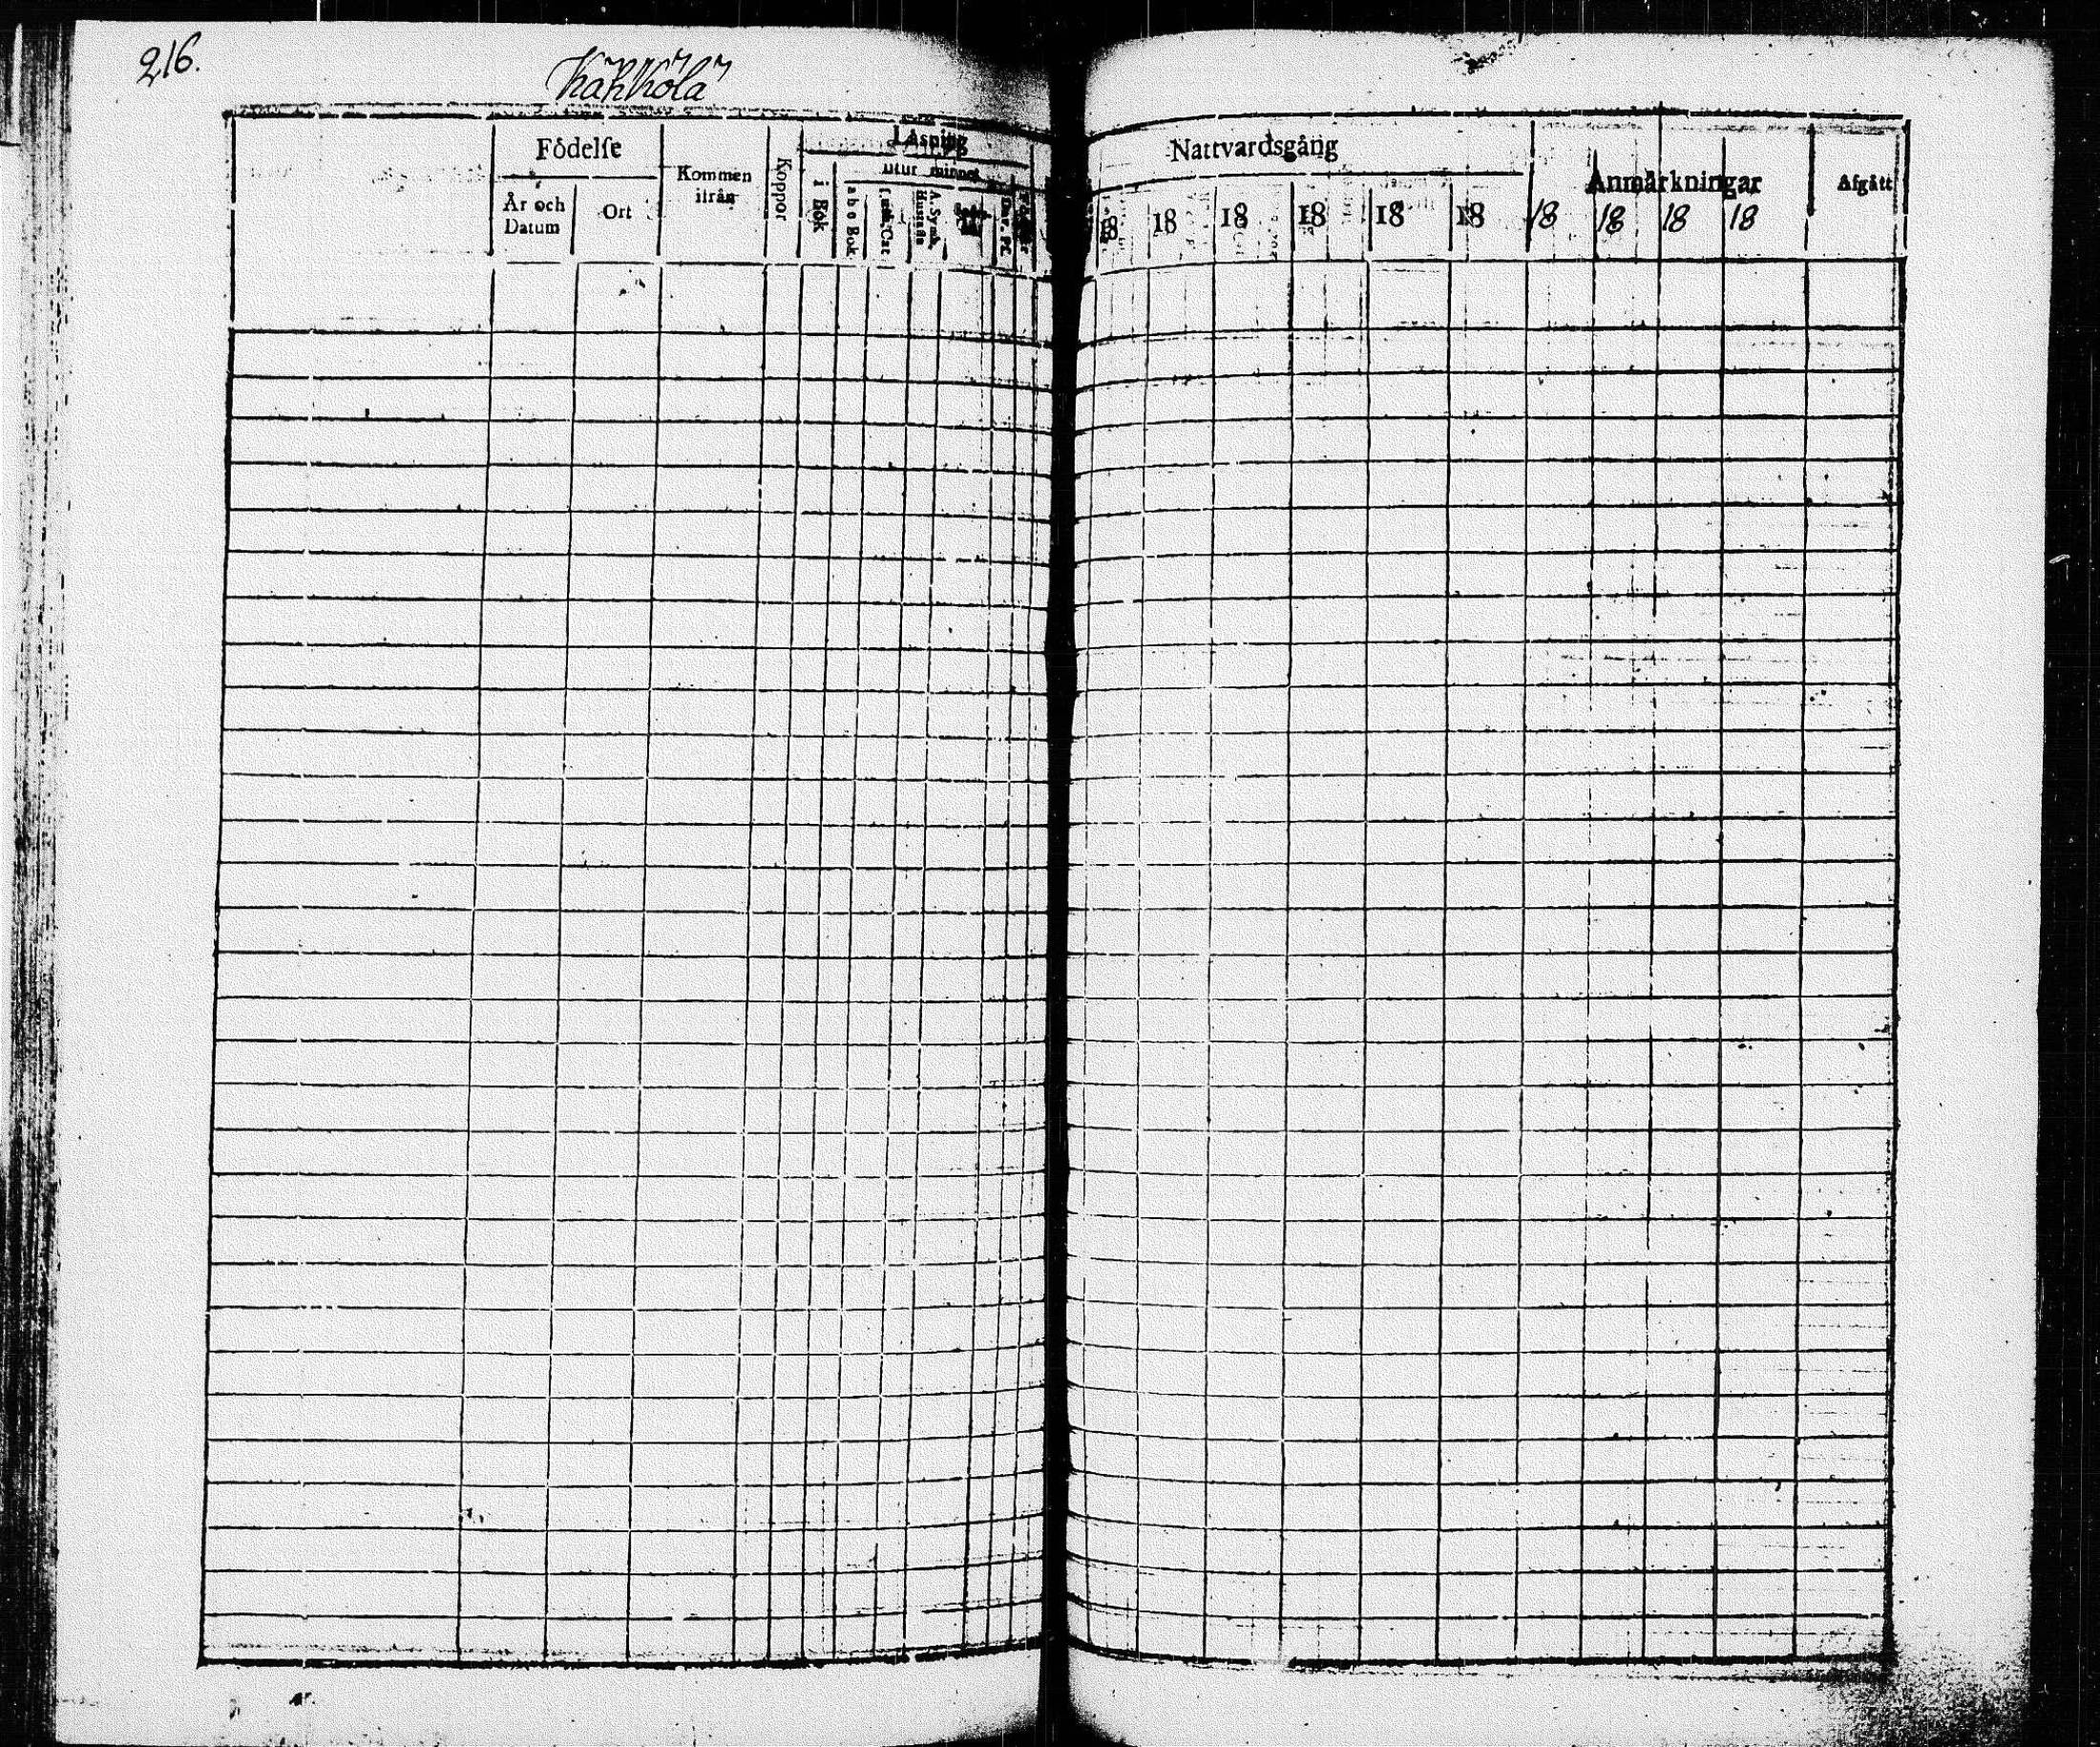 216.
Kähkölä
Födelse
År och Datum
Ort
Kommen ifrån
Koppor
Läsning
i Bok
utur minnet
a b c Bok
Luth. Cat
A. Symb.
Hustafla
Dav. Ps.
Nattvardsgång
18 18 18 18 18 18 18 18 18 18
Anmärkningar
Afgått